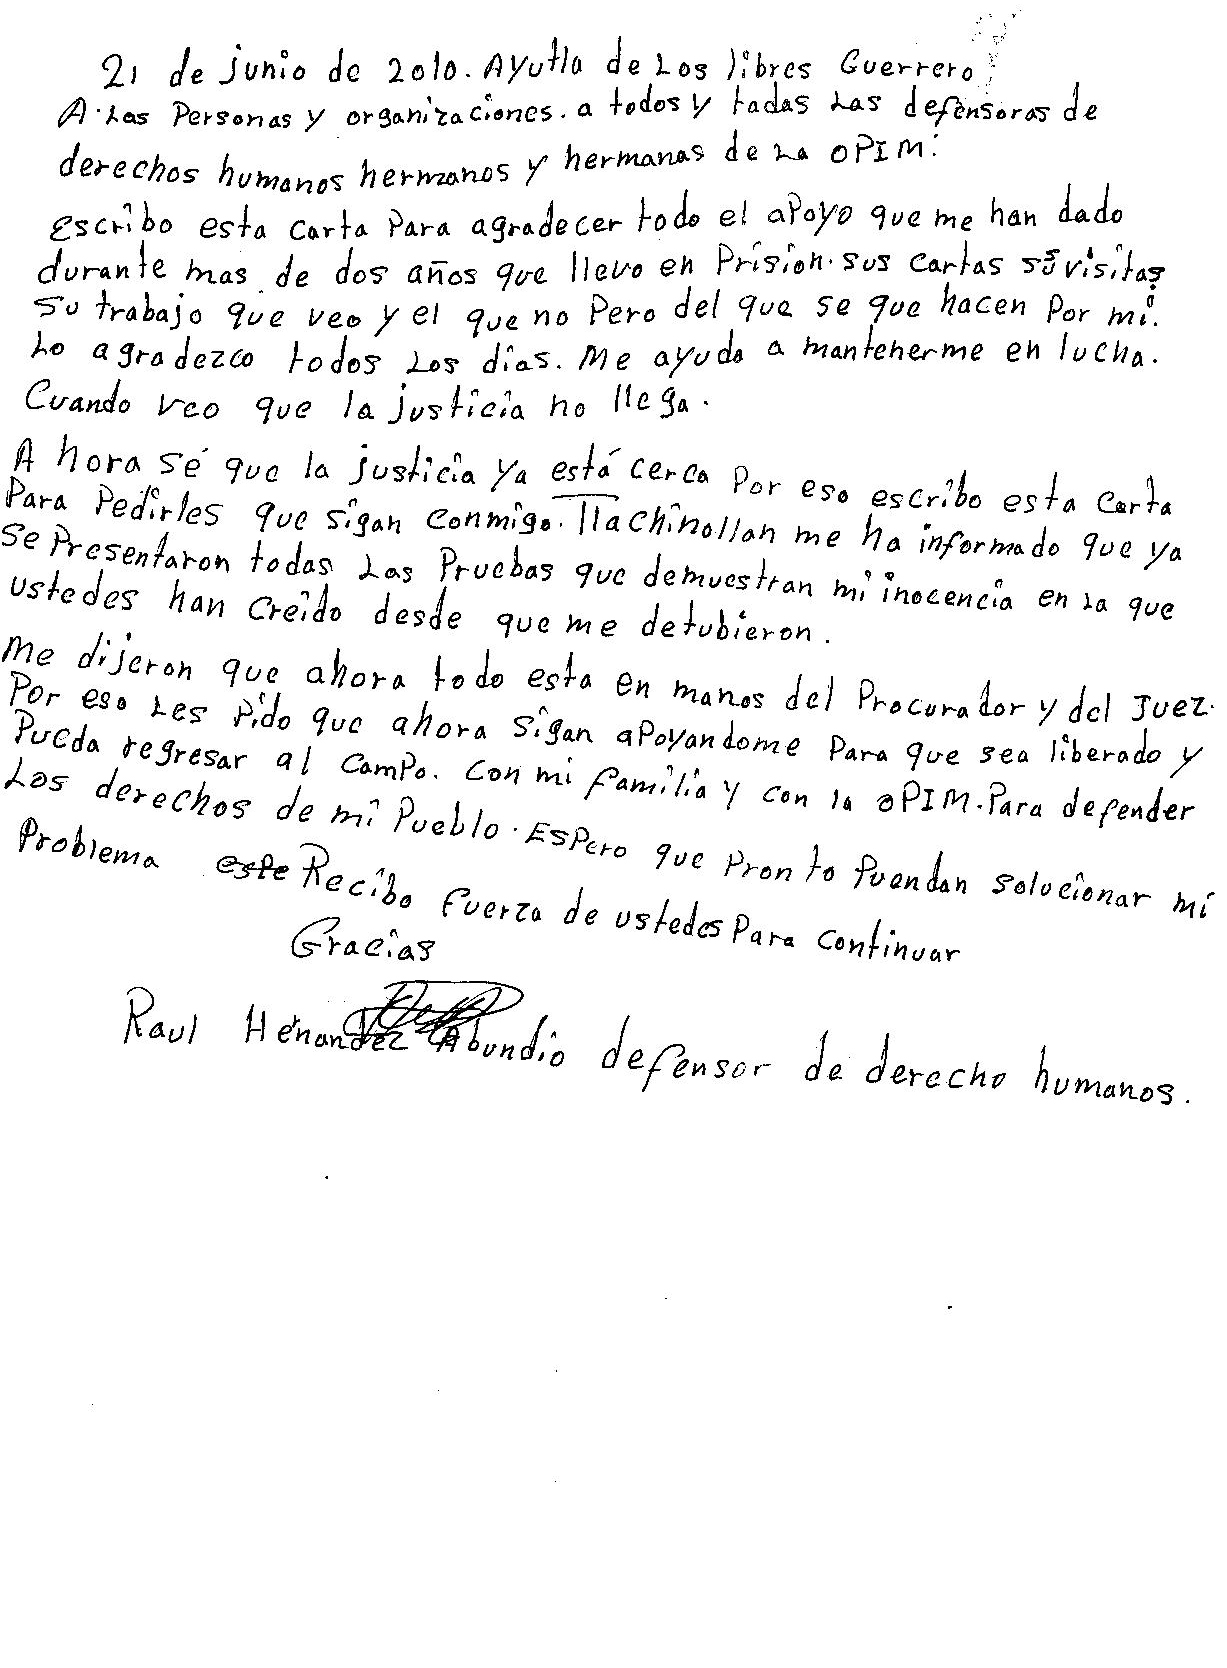 21 de junio de 2010. Ayutla de Los libres Guerrero
A. Las Personas y organizaciones. a todos y tadas Las defensoras de
derechos humanos hermanos y hermanas de La OPIM:
escribo esta carta Para agradecer todo el aPoyo que me han dado
durante mas de dos años que llevo en Prision. sus cartas su visitas
su trabajo que veo y el que no Pero del que se que hacen Por mi.
Lo agradezco todos Los dias. Me ayuda a mantenerme en lucha.
Cuando veo que la justicia no llega.
A hora sé que la justicia ya está cerca Por eso escribo esta Carta
Para Pedirles que sigan conmigo. Tlachinollan me ha informado que ya
se Presentaron todas Las Pruebas que demuestran mi inocencia en La que
ustedes han creido desde que me detubieron.
Me dijeron que ahora todo esta en manos del Procurador y del Juez.
Por eso Les Pido que ahora sigan aPoyandome Para que sea liberado y
Pueda regresar al camPo. con mi familia y con la OPIM. Para defender
Los derechos de mi Pueblo. EsPero que Pronto Puendan solucionar mi
Problema este Recibo fuerza de ustedes Para continuar
Gracias
Raul Hénandez Abundio defensor de derecho humanos.